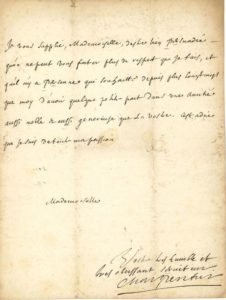 Je vous supplie, Mademoiselle, d'estre bien persuadée
qu'on ne peut vous porter plus de respect que je fais, et
qu'il n'y a personne qui souhaitte depuis plus longtemps
que moy d'avoir quelque petite part dans une amitié
aussi noble et aussi genereuse que la vostre.
que je suis de toute ma passion
Mademoiselle
Vostre tres humble et
tres obeissant serviteur
Charpentier